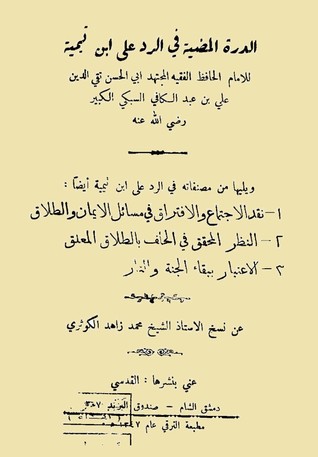 الدرة المضية في الرد على ابن تيمية
للامام الحافظ الفقيه المجتهد ابي الحسن تقي الدين
علي بن عبد الكافي السبكي الكبير
رضي الله عنه
ويليها من مصنفاته في الرد على ابن تيمية أيضا :
١ – نقد الاجتماع والافتراق في مسائل الايمان والطلاق
٢ – النظر المحقق في الحلف بالطلاق المعلق
٣ – الاعتبار ببقاء الجنة والنار
عن نسخ الاستاذ الشيخ محمد زاهد الكوثري
عني بنشرها : القدسي
دمشق الشام – صندوق البريد
مطبعة الترقي عام